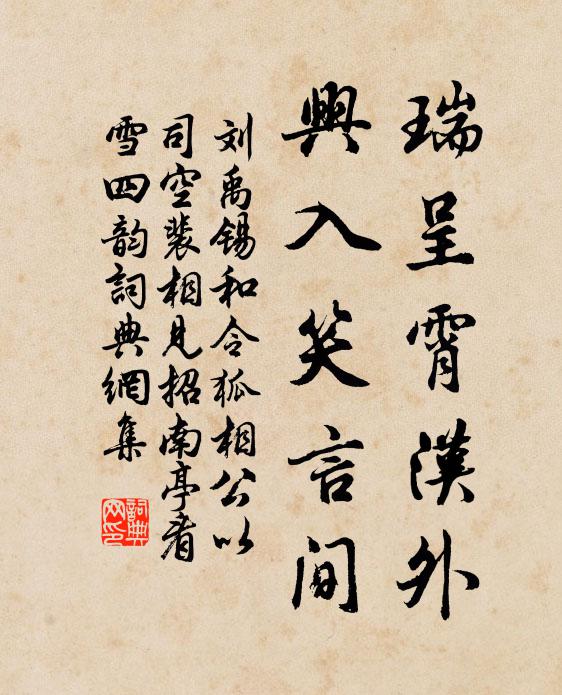 瑞呈霄漢外
興入笑言间
刘禹锡和令狐相公以
司空裴相见招南亭看
雪四韵詞典網集
詞典
网印